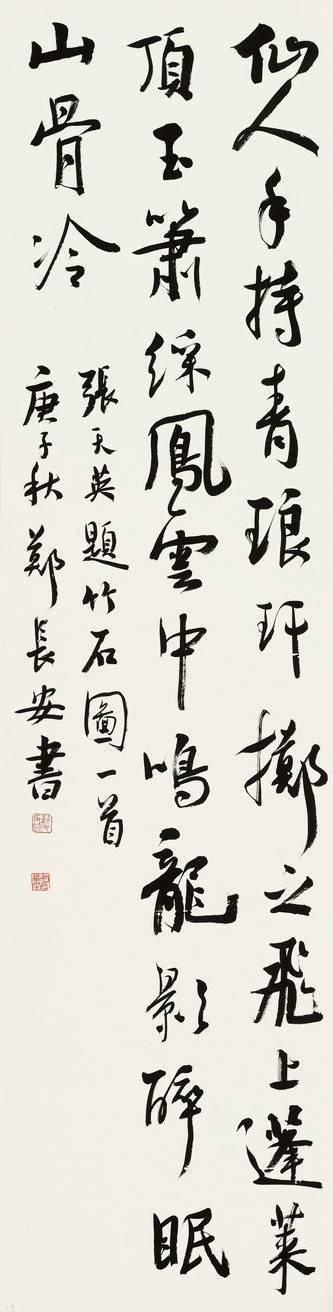 仙人手持青琅玕擲之飛上蓬萊
頂玉簫綵鳳雲中鳴龍影醉眠
山骨冷
張天英題竹石圖一首
庚子秋鄭長安書